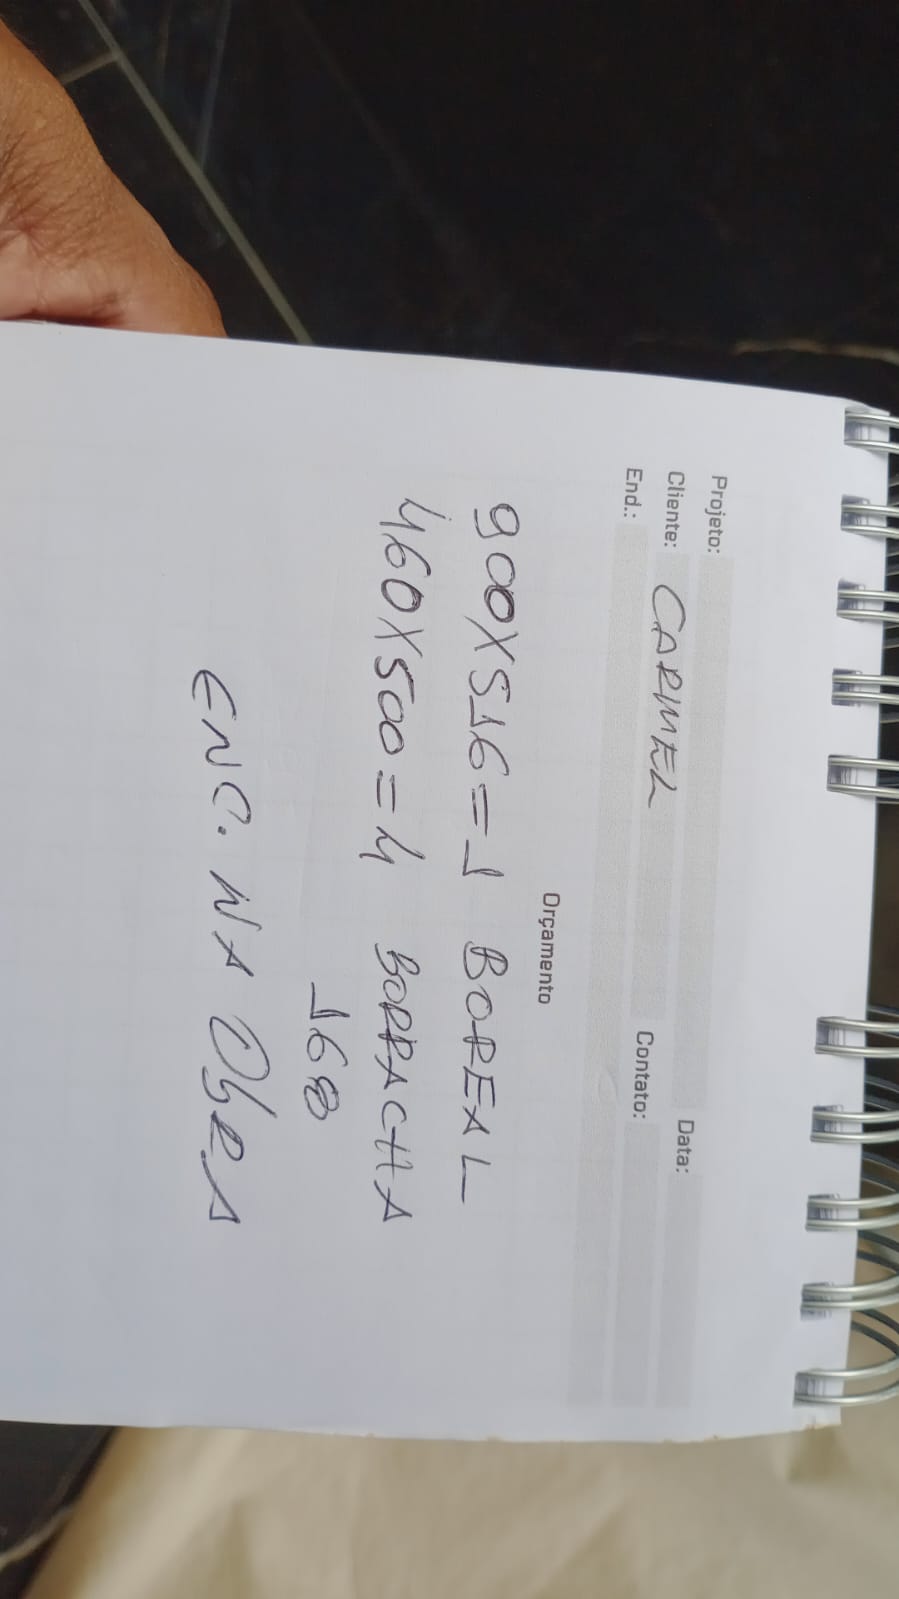 Projeto:
Cliente: CARMEL Data:
End.: Contato:
Orçamento
900X516=1 BOREAL
460X500=4 BORRACHA
168
ENC. NA ObRA